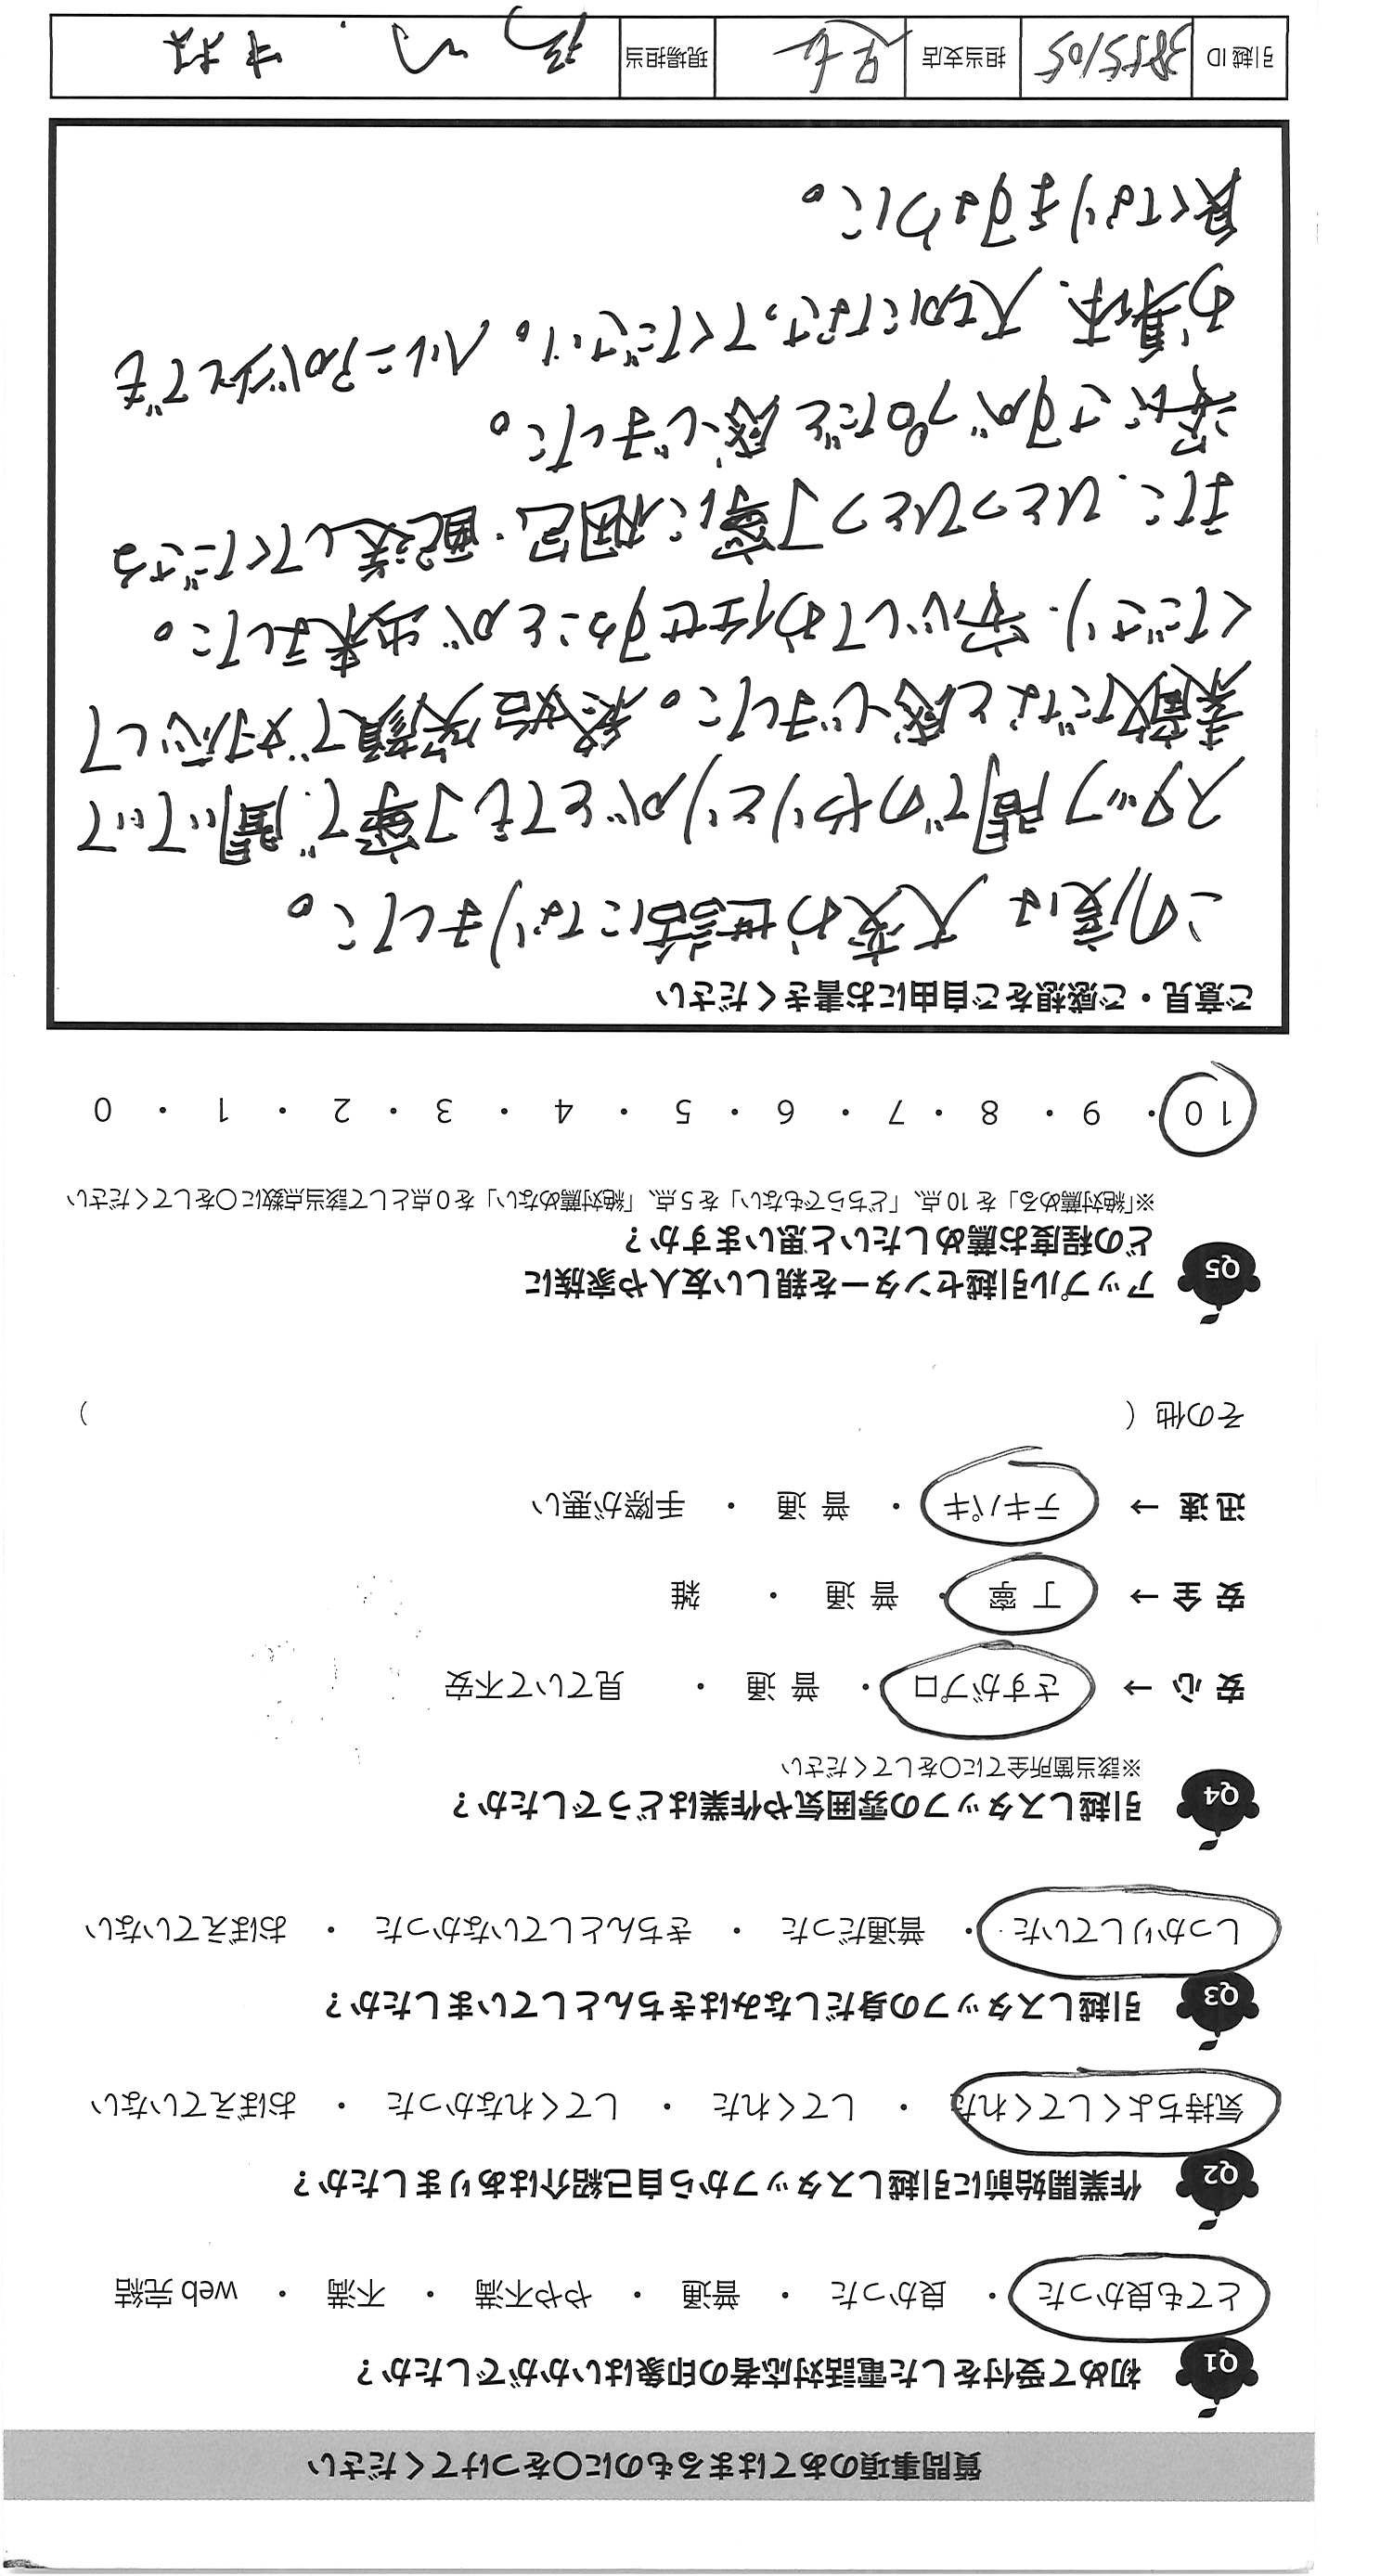 質問事項のあてはまるものに○をつけてください
Q1 初めて受付をした電話対応者の印象はいかがでしたか?
とても良かった ・ 良かった ・ 普通 ・ やや不満 ・ 不満 ・ web 完結
Q2 作業開始前に引越しスタッフから自己紹介はありましたか?
気持ちよくしてくれた ・ してくれた ・ してくれなかった ・ おぼえていない
Q3 引越しスタッフの身だしなみはきちんとしていましたか?
しっかりしていた ・ 普通だった ・ きちんとしていなかった ・ おぼえていない
Q4 引越しスタッフの雰囲気や作業はどうでしたか?
※該当箇所全てに○をしてください
安 心 → さすがプロ ・ 普 通 ・ 見ていて不安
安 全 → 丁 寧 ・ 普 通 ・ 雑
迅 速 → テキパキ ・ 普 通 ・ 手際が悪い
その他 ( )
Q5 アップル引越センターを親しい友人や家族に
どの程度お薦めしたいと思いますか?
※「絶対薦める」を 10 点、「どちらでもない」を 5 点、「絶対薦めない」を 0 点として該当点数に○をしてください
10 ・ 9 ・ 8 ・ 7 ・ 6 ・ 5 ・ 4 ・ 3 ・ 2 ・ 1 ・ 0
ご意見・ご感想をご自由にお書きください
この度は 大変お世話になりました。
スタッフ間でのやりとりがとても丁寧で、聞いていて
素敵だなと感じました。終始笑顔で対応して
くださり、安心してお任せすることが出来ました。
また、ひとつひとつ丁寧に梱包・配送してくださる
姿にさすがプロだと感じました。
お身体、大切になさってください。ヘルニアが少しでも
良くなりますように。
引越 ID 3855105 担当支店 足立 現場担当 中村